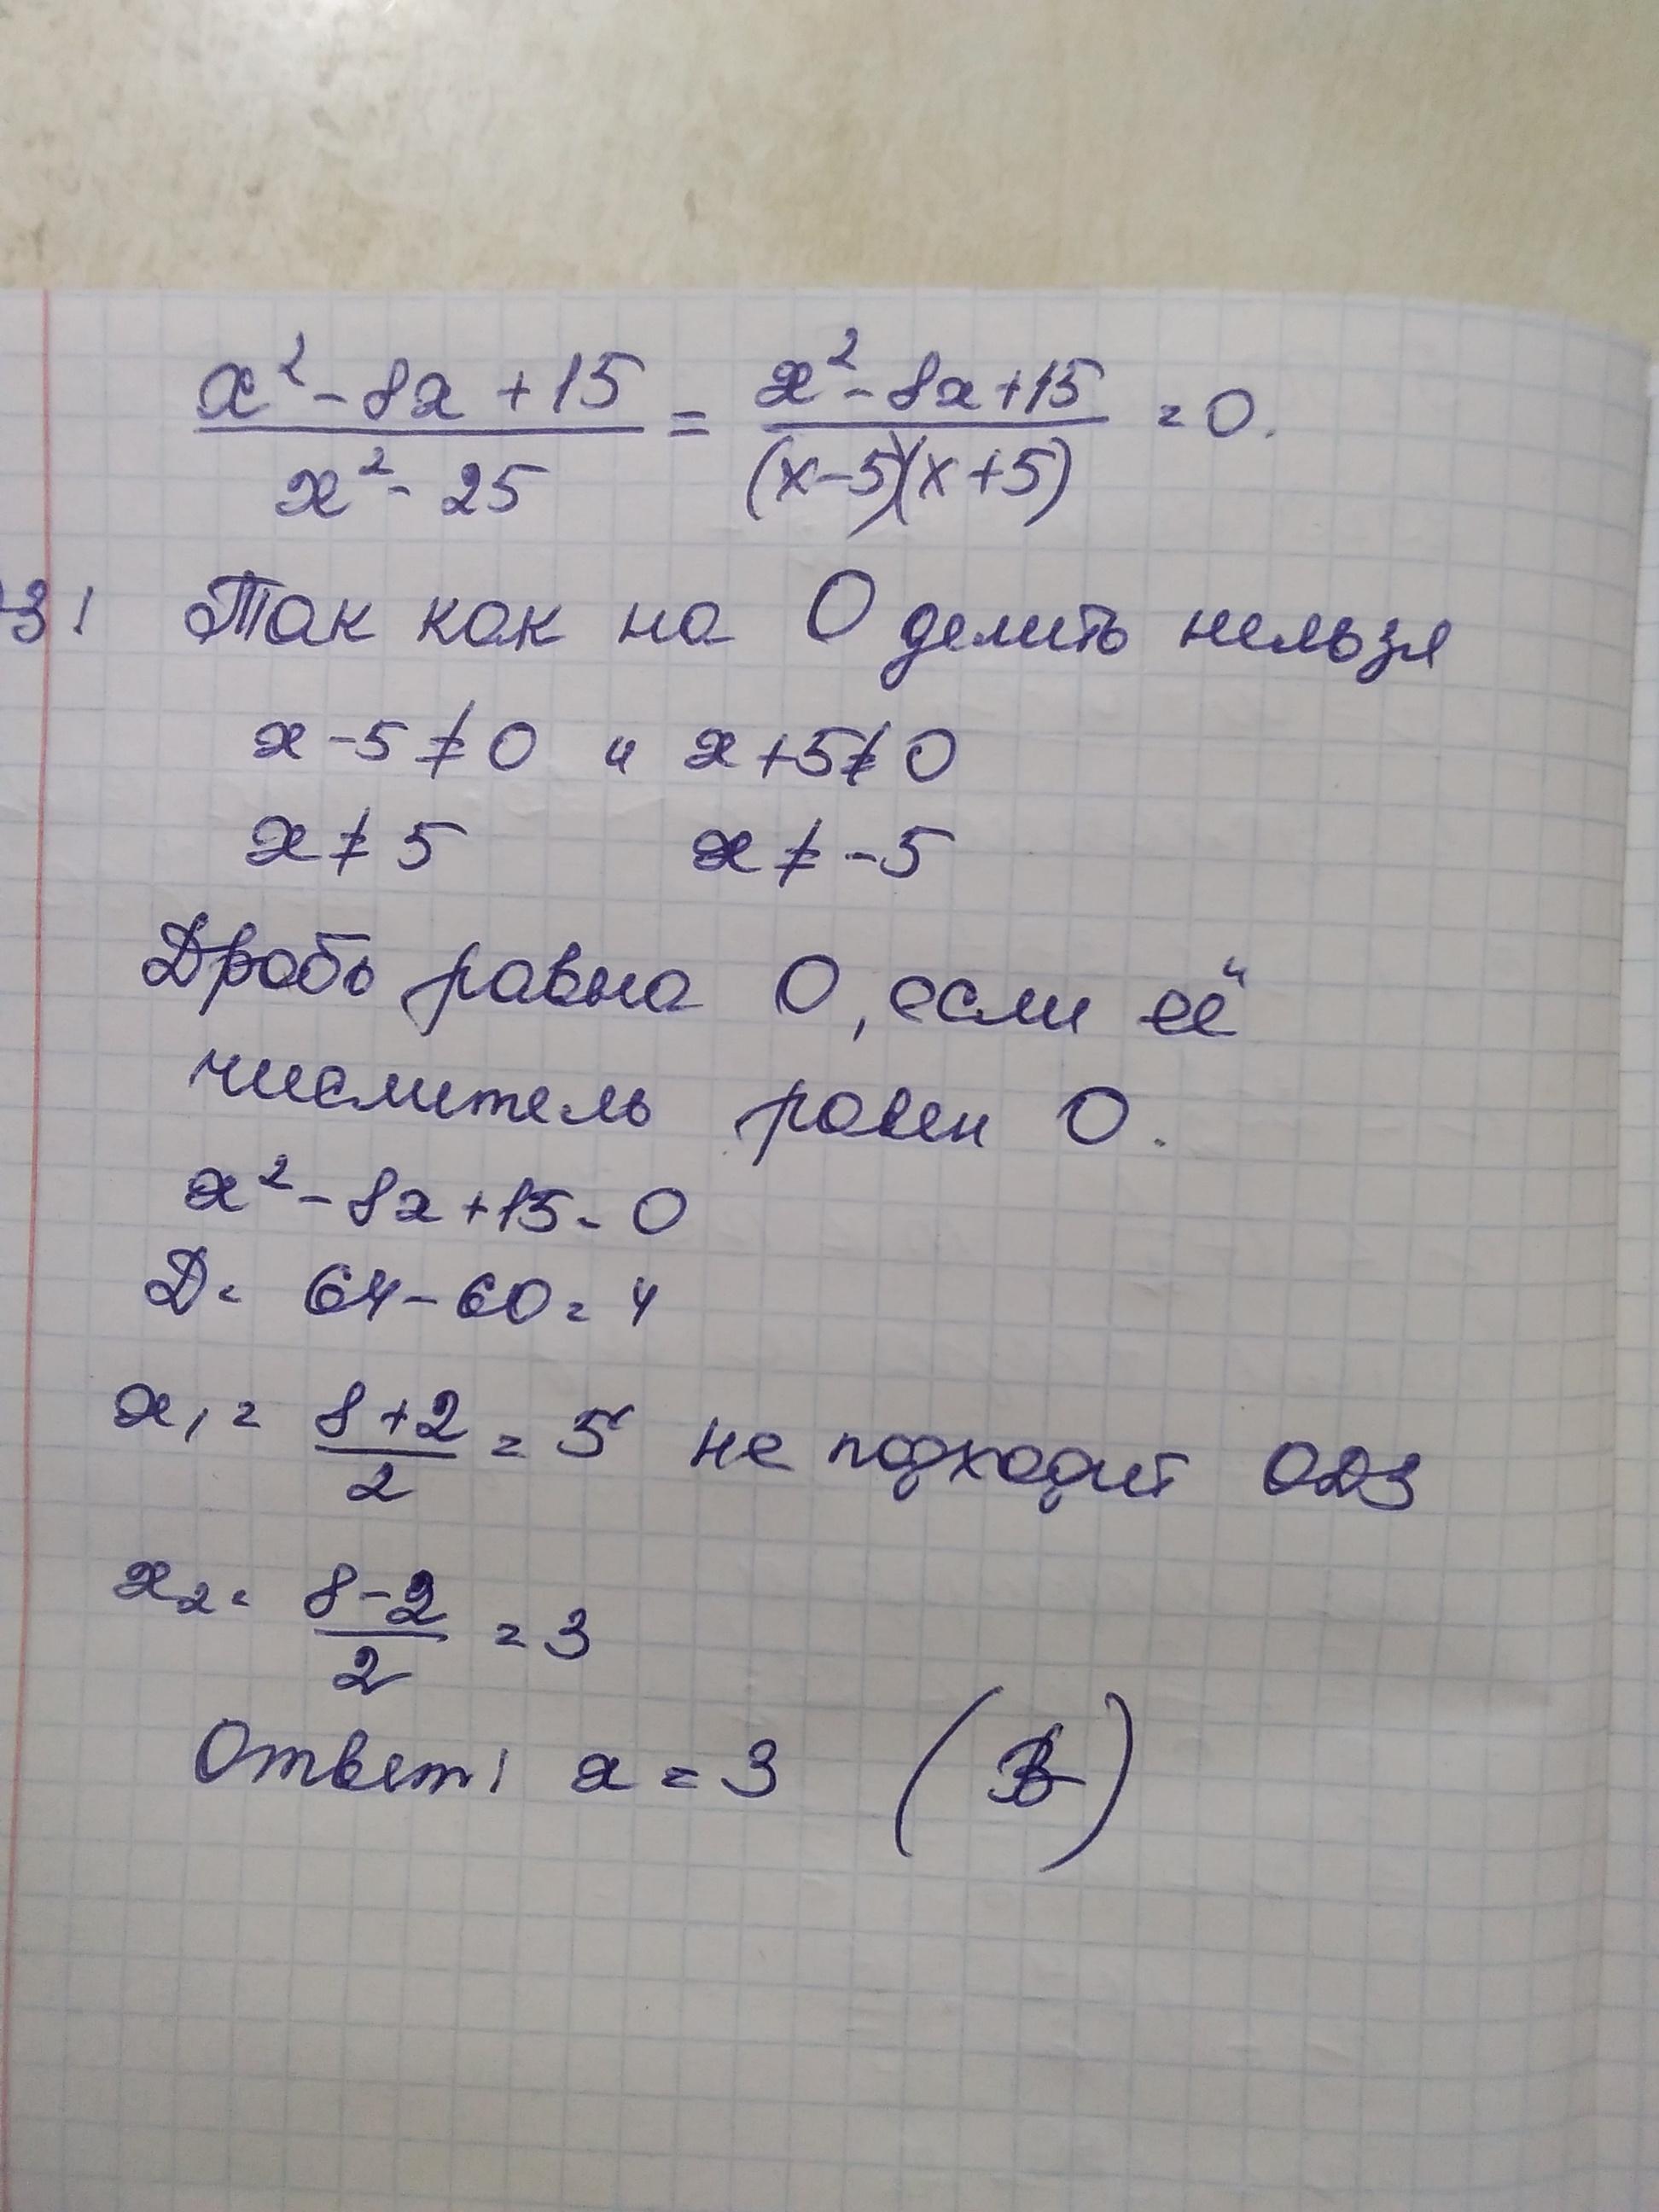 x² - 8x + 15 / x² - 25 = x² - 8x + 15 / (x-5)(x+5) = 0.
ДЗ: Так как на 0 делить нельзя
x - 5 ≠ 0 и x + 5 ≠ 0
x ≠ 5 x ≠ -5
Дробь равна 0, если её
числитель равен 0.
x² - 8x + 15 = 0
D = 64 - 60 = 4
x₁ = 8+2 / 2 = 5 не подходит ОДЗ
x₂ = 8-2 / 2 = 3
Ответ: x = 3 (В)